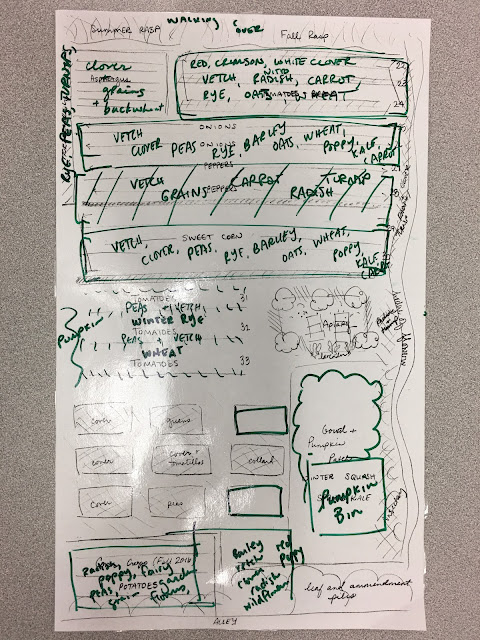 WALKING COVER
SUMMER RASP
Fall Rasp
clover
ASPARAGUS
grains
+ buckwheat
RED, CRIMSON, WHITE CLOVER
VETCH, RADISH, CARROT
RYE, OATS, WHEAT
TOMATOES
22
23
24
RYE, PEAS, TURNIPS,
ONIONS
VETCH
CLOVER PEAS RYE, BARLEY OATS, WHEAT, POPPY, KALE, CARROT
ONIONS
PEPPERS
VETCH CARROT TURNIP
GRAINS RADISH
PEPPERS
SWEET CORN
VETCH,
CLOVER, PEAS, RYE, BARLEY, OATS, WHEAT, POPPY, KALE, CARROT
PUMPKIN
TOMATOES 31
PEAS + VETCH
WINTER RYE
TOMATOES 32
PEAS + VETCH
WHEAT
TOMATOES 33
cover
greens
cover
cover +
tomatillos
collard
cover
peas
Gourd +
Pumpkin
Patch
WINTER SQUASH
KALE
PUMPKIN
BIN
Fall 2016
POTATOES
RADISH,
POPPY, FAIRY
PEAS, GARDEN
grain flowers,
Barley red
vetch poppy
clover
radish
wildflower
leaf and ammendment
piles
ALLEY